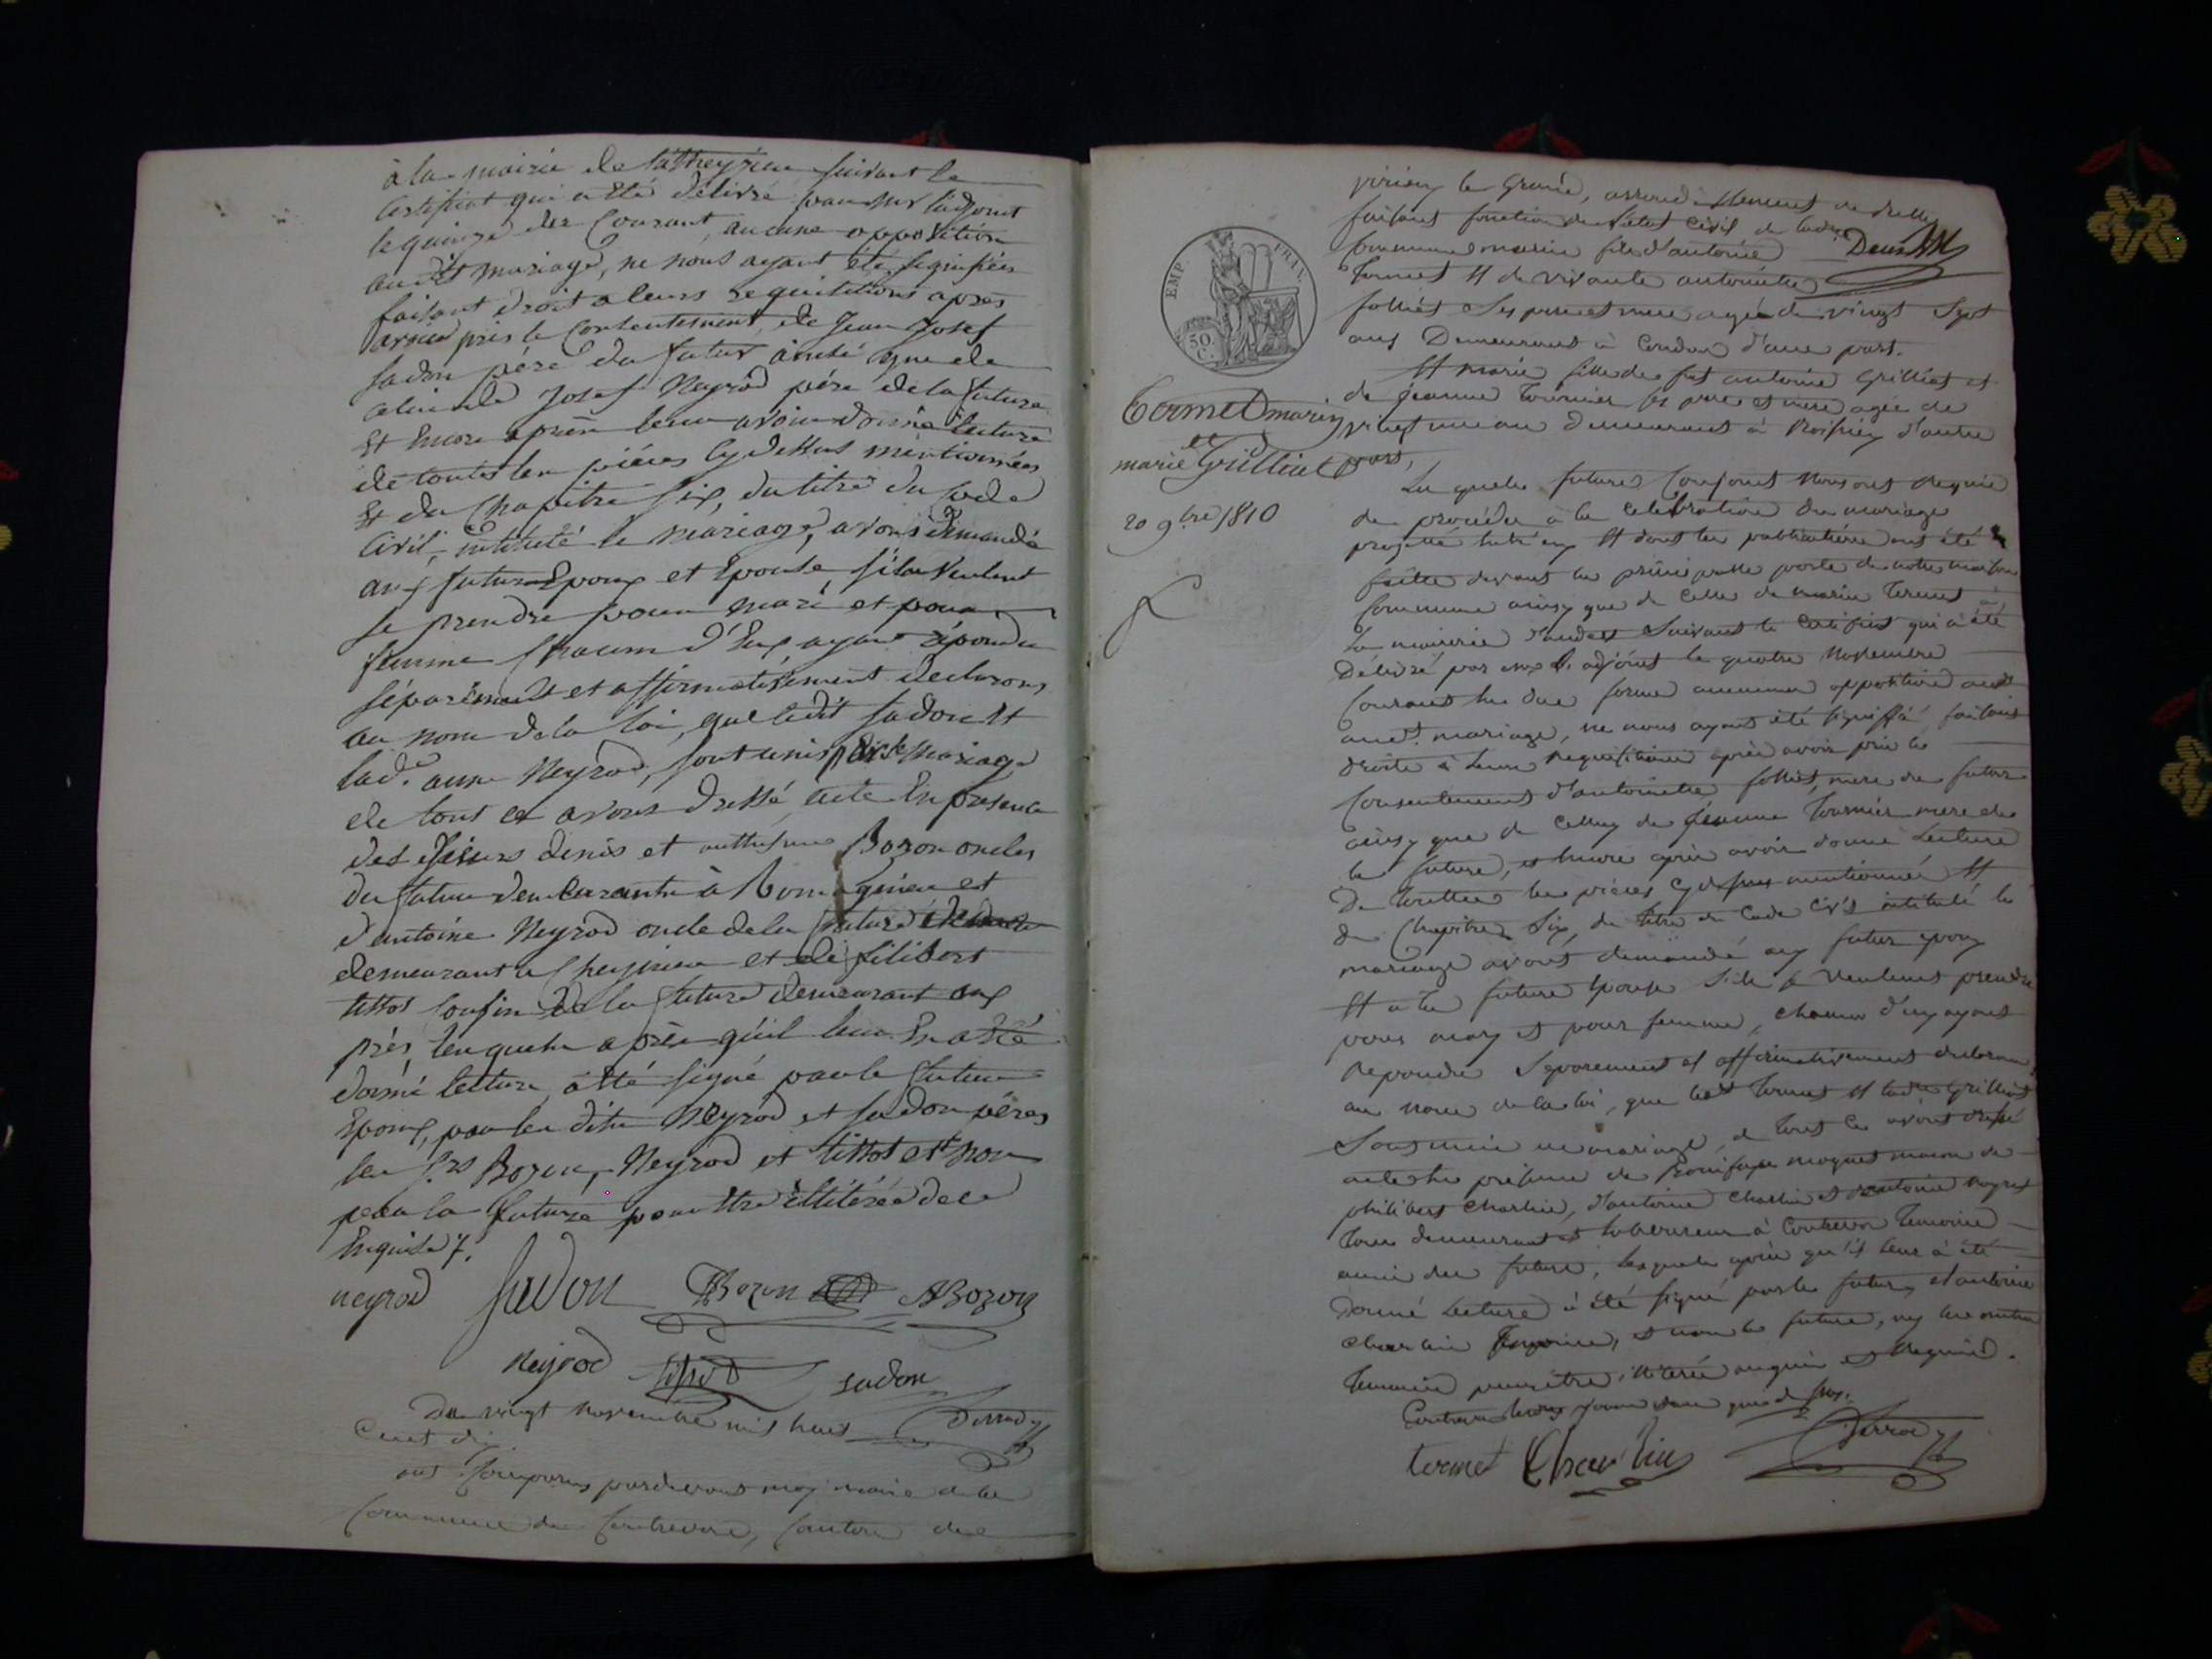 à la mairie de La Cheyrieu suivant le
certificat qui a été délivré par mr l'adjoint
le quinze du Courant, aucune opposition
audit mariage, ne nous ayant été signifiée
faisant droit a leurs requisitions apres
avoir pris le Consentement de Jean Josef
sadon père du futur ainsi que de
celui de Josef Neyrod père de la future
Et Encore après leur avoir donné lecture
de toutes les pièces cy dessus mentionnées
Et du Chapitre six, du titre du Code
Civil intitulé le mariage, avons demandé
aux futurs Epoux et Epouse s'ils veulent
se prendre pour mari et pour
femme Chacun d'Eux ayant répondu
séparément et affirmativement declarons
au nom de la loi, que ledit sadon Et
lad.e anne Neyrod, sont unis par le mariage
de tout ce avons dressé acte En presence
des sieurs denis et Bozon oncles
du futur demeurants à Romagnieu et
d'antoine Neyrod oncle de la future
demeurant a Cheyrieu et de filibert
tissot cousin de la future demeurant aux
près, lesquels après qu'il leur En a été
donné lecture, a été signé par le futur
Epoux, par les dits Neyrod et sadon pères
les srs Bozon, Neyrod et tissot et non
par la future pour être illiterée de ce
Enquise
neyrod sadon Bozon ABozon
Neyrod tissot sadon
Du vingt novembre mil huit
Cent dix
ont Comparus pardevant moy maire de la
Commune de Contrevoz, Canton de
virieu le Grand, arrondissement de Belley
faisant fonction de l'état Civil de ladte
Commune marin fils d'antoine
termet Et de vivante antoinette
folliet ses père et mere agé de vingt sept
ans Demeurant à Condon d'une part.
Et marie fille de fut antoine Grilliet et
de jeanne tournier ses père et mere agée de
vingt un an demeurant à d'autre
part,
EMP. FRAN.
50 C.
termet marin
et
marie Grilliet
20 9bre 1810
Lesquels futurs Conjoints nous ont requis
de procéder à la Celebration du mariage
projetté entr'eux Et dont les publications ont été
faittes devant la principalle porte de notre maison
Commune ainsy que de Celle de marin termet à
la mairie d'andert suivant le Certificat qui a été
Délivré par mr l'adjoint le quatre Novembre
Courant En due forme aucune opposition
aud.t mariage, ne nous ayant été signiffié faisant
droits à leurs requisitions après avoir pris le
Consentement d'antoinette folliet, mere du futur
ainsy que de Celluy de jeanne tournier mere de
la future, et encore après avoir donné Lecture
De touttes les pièces cy dessus mentionnée Et
du Chapitre Six, du titre du Code Civil intitulé le
mariage avons demandé aux futur Epoux
Et à la future Epouse s'ils se veulent prendre
pour mary et pour femme, chacun d'eux ayant
Repondu Separement et affirmativement declarons
au nom de la loi, que ledt termet Et ladte Grilliet
Sont unis en mariage, de tout Ce avons dressé
acte En presence de Boniface moynet maçon de
philibert Charlin, d'antoine Charlin et d'antoine moynet
tous demeurant et laboureur à Contrevoz temoins
amis des futurs, lesquels après qu'il leur à été
Donné Lecture à été signé par le futur, et antoine
Charlin temoins, et non la future, ny les autres
temoins pour être illiteré enquis et Requis.
Contrevoz les jour et an que dessus.
termet Charlin